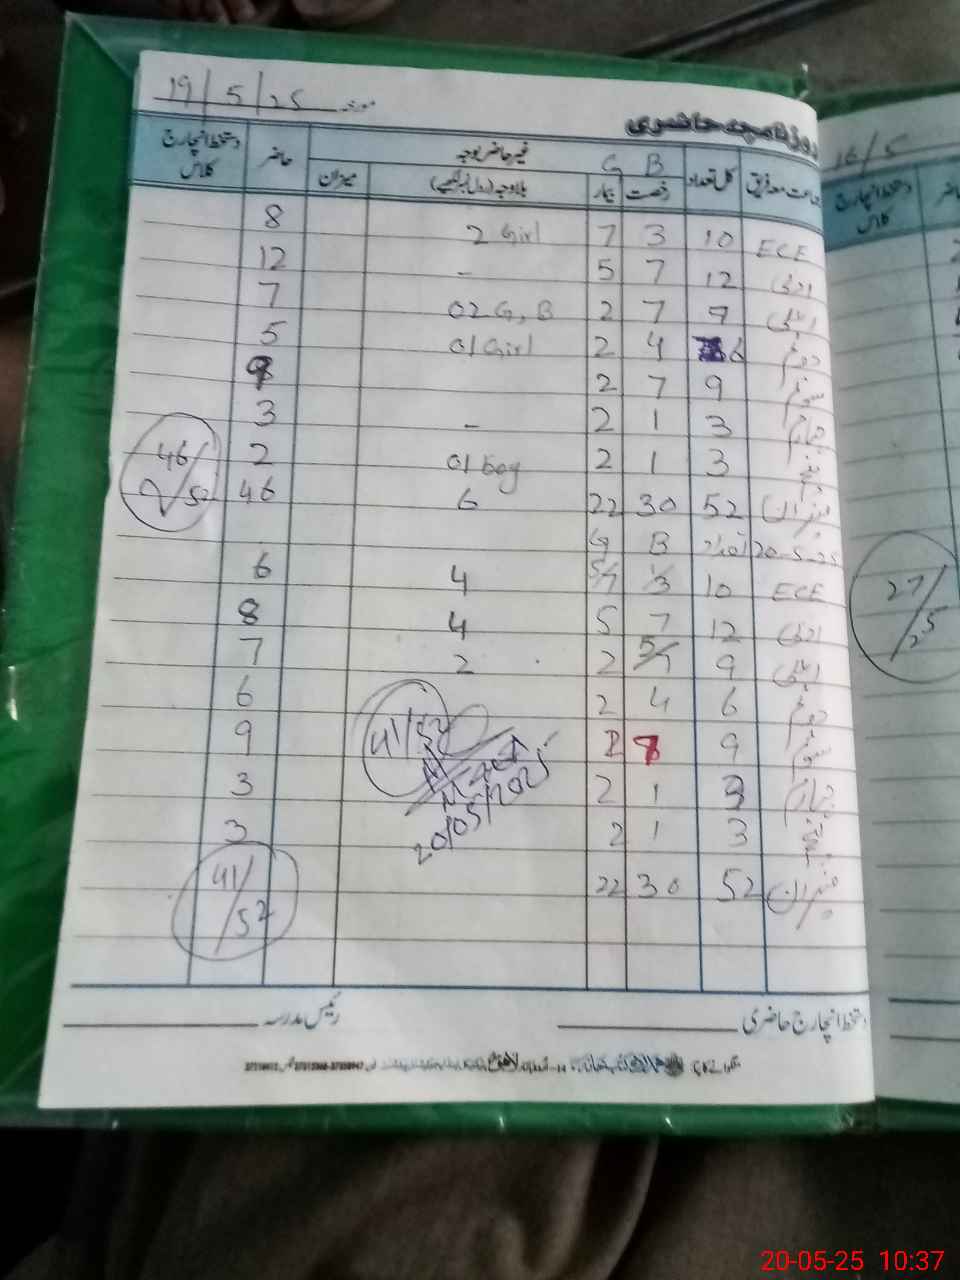 مورخہ 19/5/25
روزنامچہ حاضری
جماعت معہ فریق کل تعداد B رخصت G بیمار غیر حاضر بوجہ بلاوجہ (رول نمبر لکھیے) میزان حاضر دستخط انچارج کلاس
ECE 10 3 7 2 Girl 8
ادنیٰ 12 7 5 - 12
اعلیٰ 9 7 2 02 G, B 7
دوم 6 4 2 01 Girl 5
سوم 9 7 2 9
چہارم 3 1 2 - 3
پنجم 3 1 2 01 boy 2
میزان 52 30 22 6 46 46/52
20-5-25 تعداد B G
ECE 10 3 7 4 6
ادنیٰ 12 7 5 4 8
اعلیٰ 9 7 2 2 7
دوم 6 4 2 6
سوم 9 2 9
41/52
چہارم 3 1 2 3
20/05/2025
پنجم 3 1 2 3
میزان 52 30 22 41/52
دستخط انچارج حاضری رئیس مدرسہ
16/5
دستخط انچارج کلاس حاضر
27/25
20-05-25 10:37